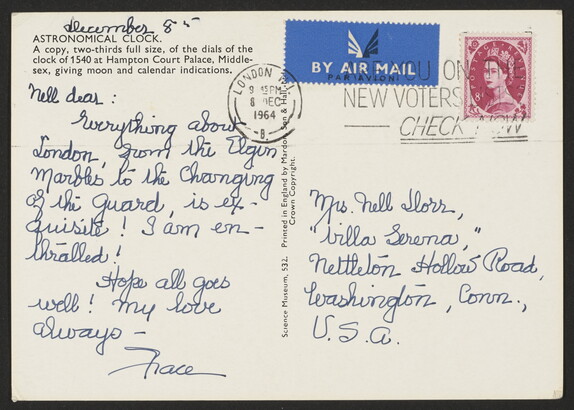 December 8
ASTRONOMICAL CLOCK.
A copy, two-thirds full size, of the dials of the
clock of 1540 at Hampton Court Palace, Middle-
sex, giving moon and calendar indications.
Nell dear:
Everything about
London, from the Elgin
Marbles to the Changing
of the Guard, is ex-
quisite! I am en-
thralled!
Hope all goes
well! My love
always –
Grace
Science Museum, S32. Printed in England by Mardon, Son & Hall
Crown Copyright.
LONDON
8 DEC
1964
B.
BY AIR MAIL
PAR AVION
YOU ON THE
NEW VOTERS
CHECK NOW
POSTAGE REVENUE
8D
Mrs. Nell Dorr,
"Villa Serena,"
Nettleton Hollow Road,
Washington, Conn.,
U.S.A.